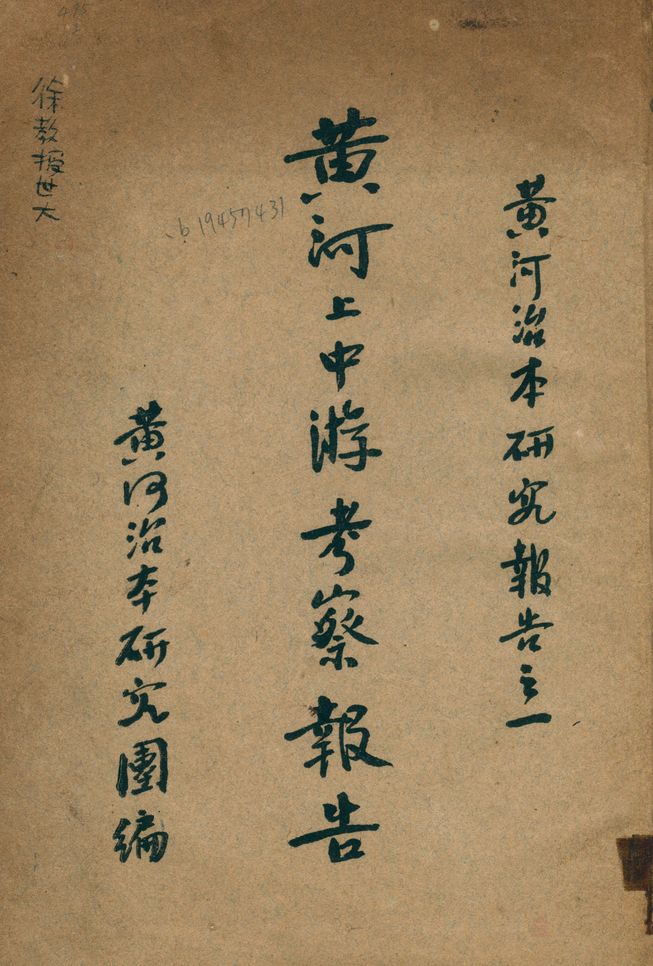 黄河治本研究報告之一
黄河上中游考察報告
黄河治本研究團編
徐教授世大
b 19457431